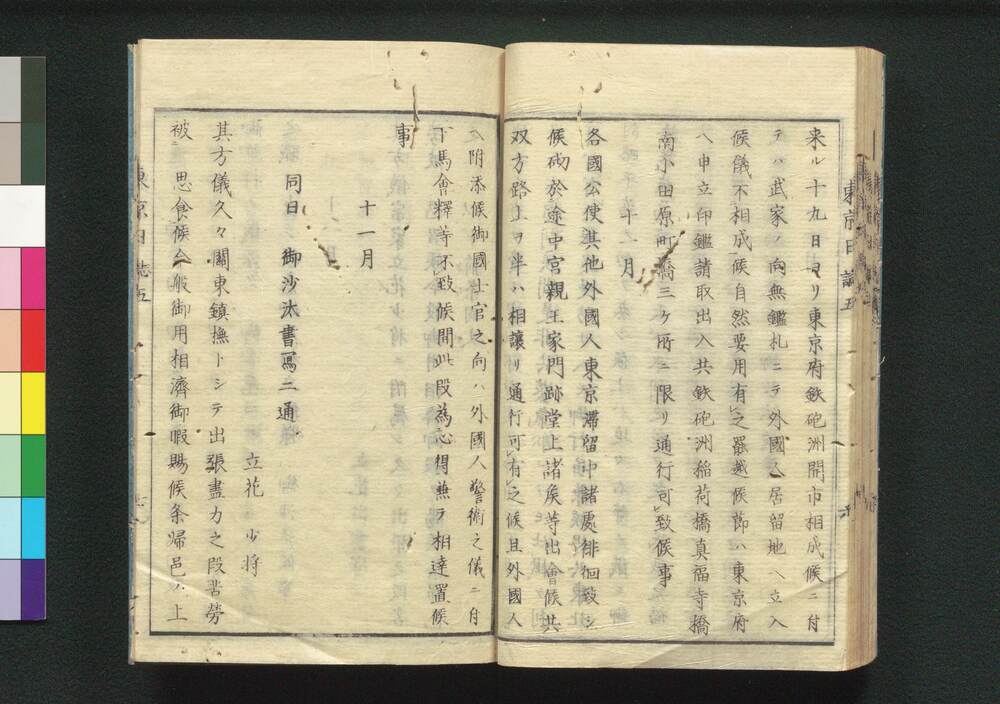 東京日誌五
来ル十九日ヨリ東京府鉄砲洲開市相成候ニ付
テハ武家ノ向無鑑札ニテ外國人居留地ヘ立入
候儀不相成候自然要用有之罷越候節ハ東京府
ヘ申立印鑑請取出入共鉄砲洲稲荷橋真福寺橋
南小田原町橋三ケ所ニ限リ通行可致候事
十一月
各國公使其他外國人東京滞留中諸處徘徊致シ
候砌於途中宮親王家門跡堂上諸矦等出會候共
双方路上ヲ半ハ相譲リ通行可有之候且外國人
ヘ附添候御國士官之向ハ外國人警衛之儀ニ付
下馬會釋等不致候間此段為心得兼テ相達置候
事
十一月
同日 御沙汰書冩二通
立花少将
其方儀久々關東鎮撫トシテ出張盡力之段苦勞
被 思食候今般御用相濟御暇賜候条帰邑ノ上
東京日誌五